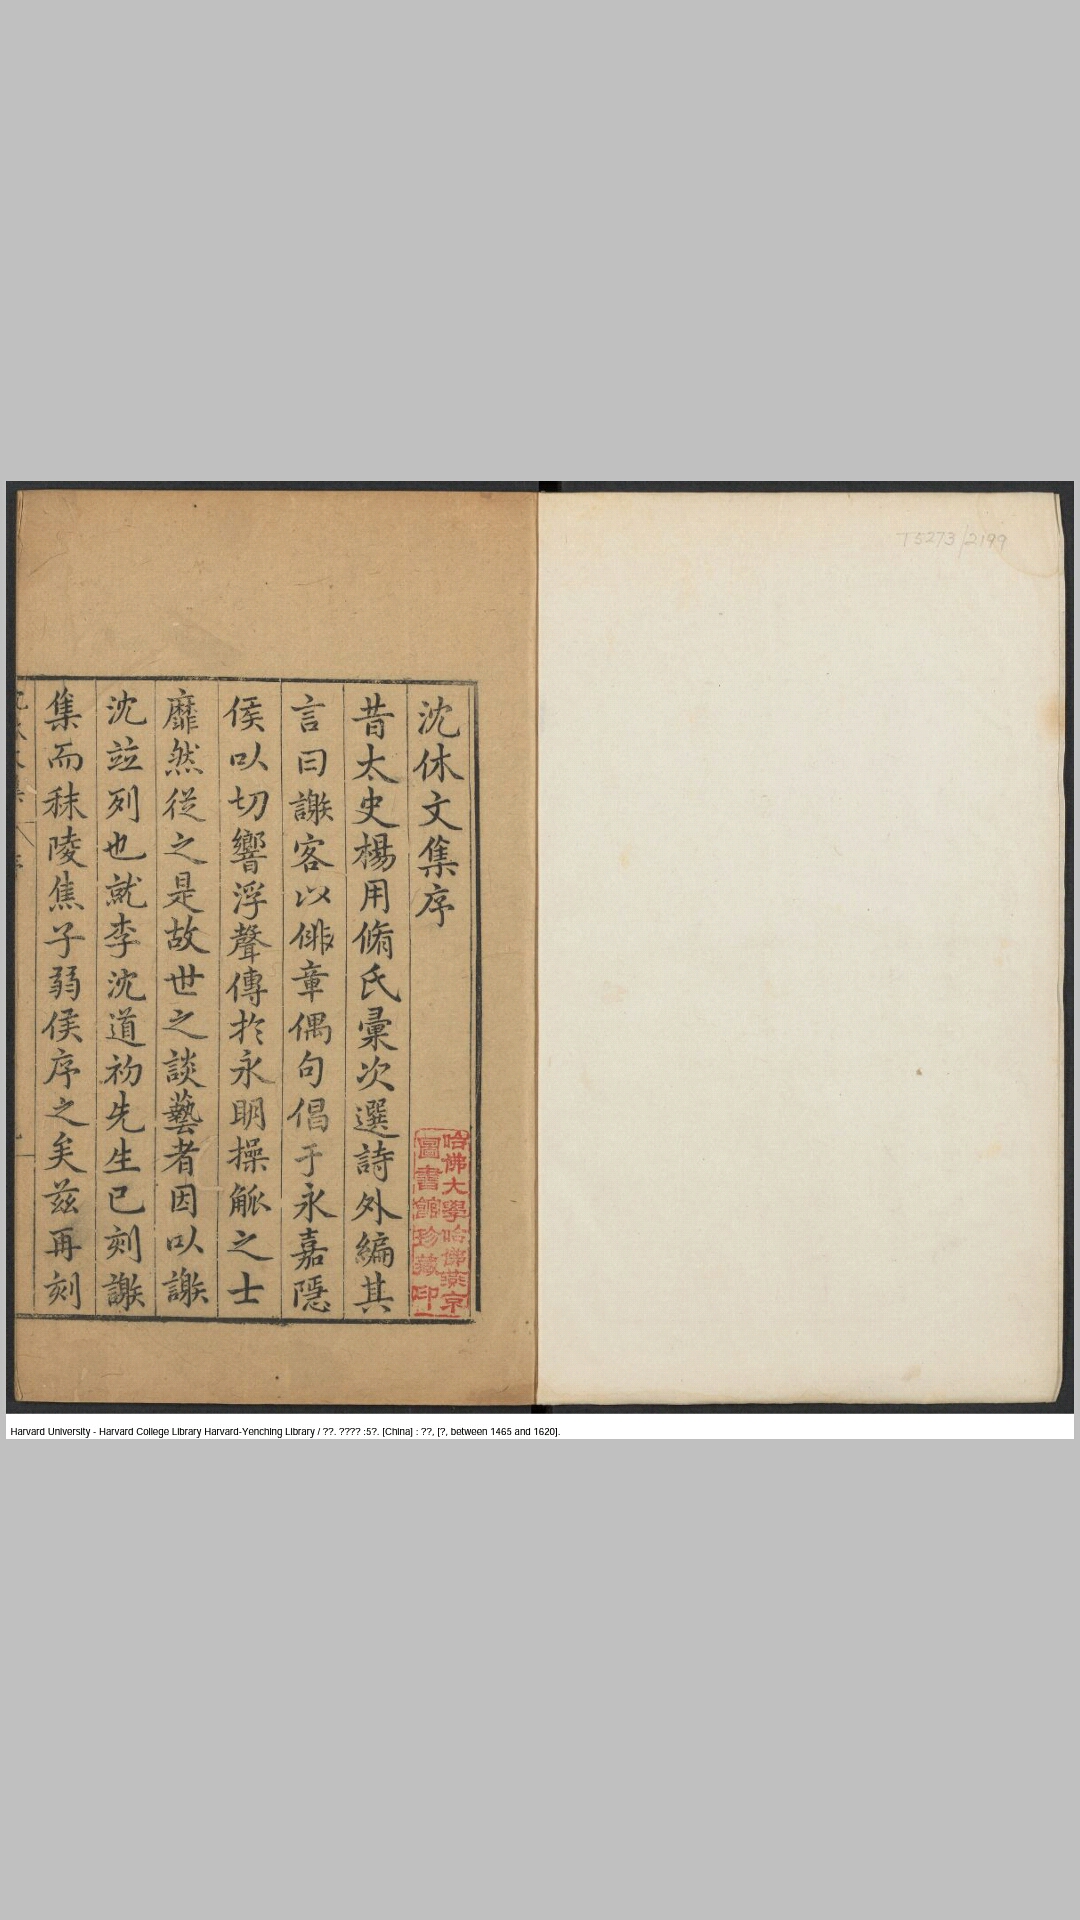 T5273/2199
沈休文集序
昔太史楊用脩氏彙次選詩外編其
言曰謝客以俳章偶句倡于永嘉隱
侯以切響浮聲傳於永明操觚之士
靡然從之是故世之談藝者因以謝
沈竝列也就李沈道初先生已刻謝
集而秣陵焦子弱侯序之矣茲再刻
哈佛大學哈佛燕京
圖書館珍藏印
Harvard University - Harvard College Library Harvard-Yenching Library / ??. ???? :5?. [China] : ??, [?, between 1465 and 1620].